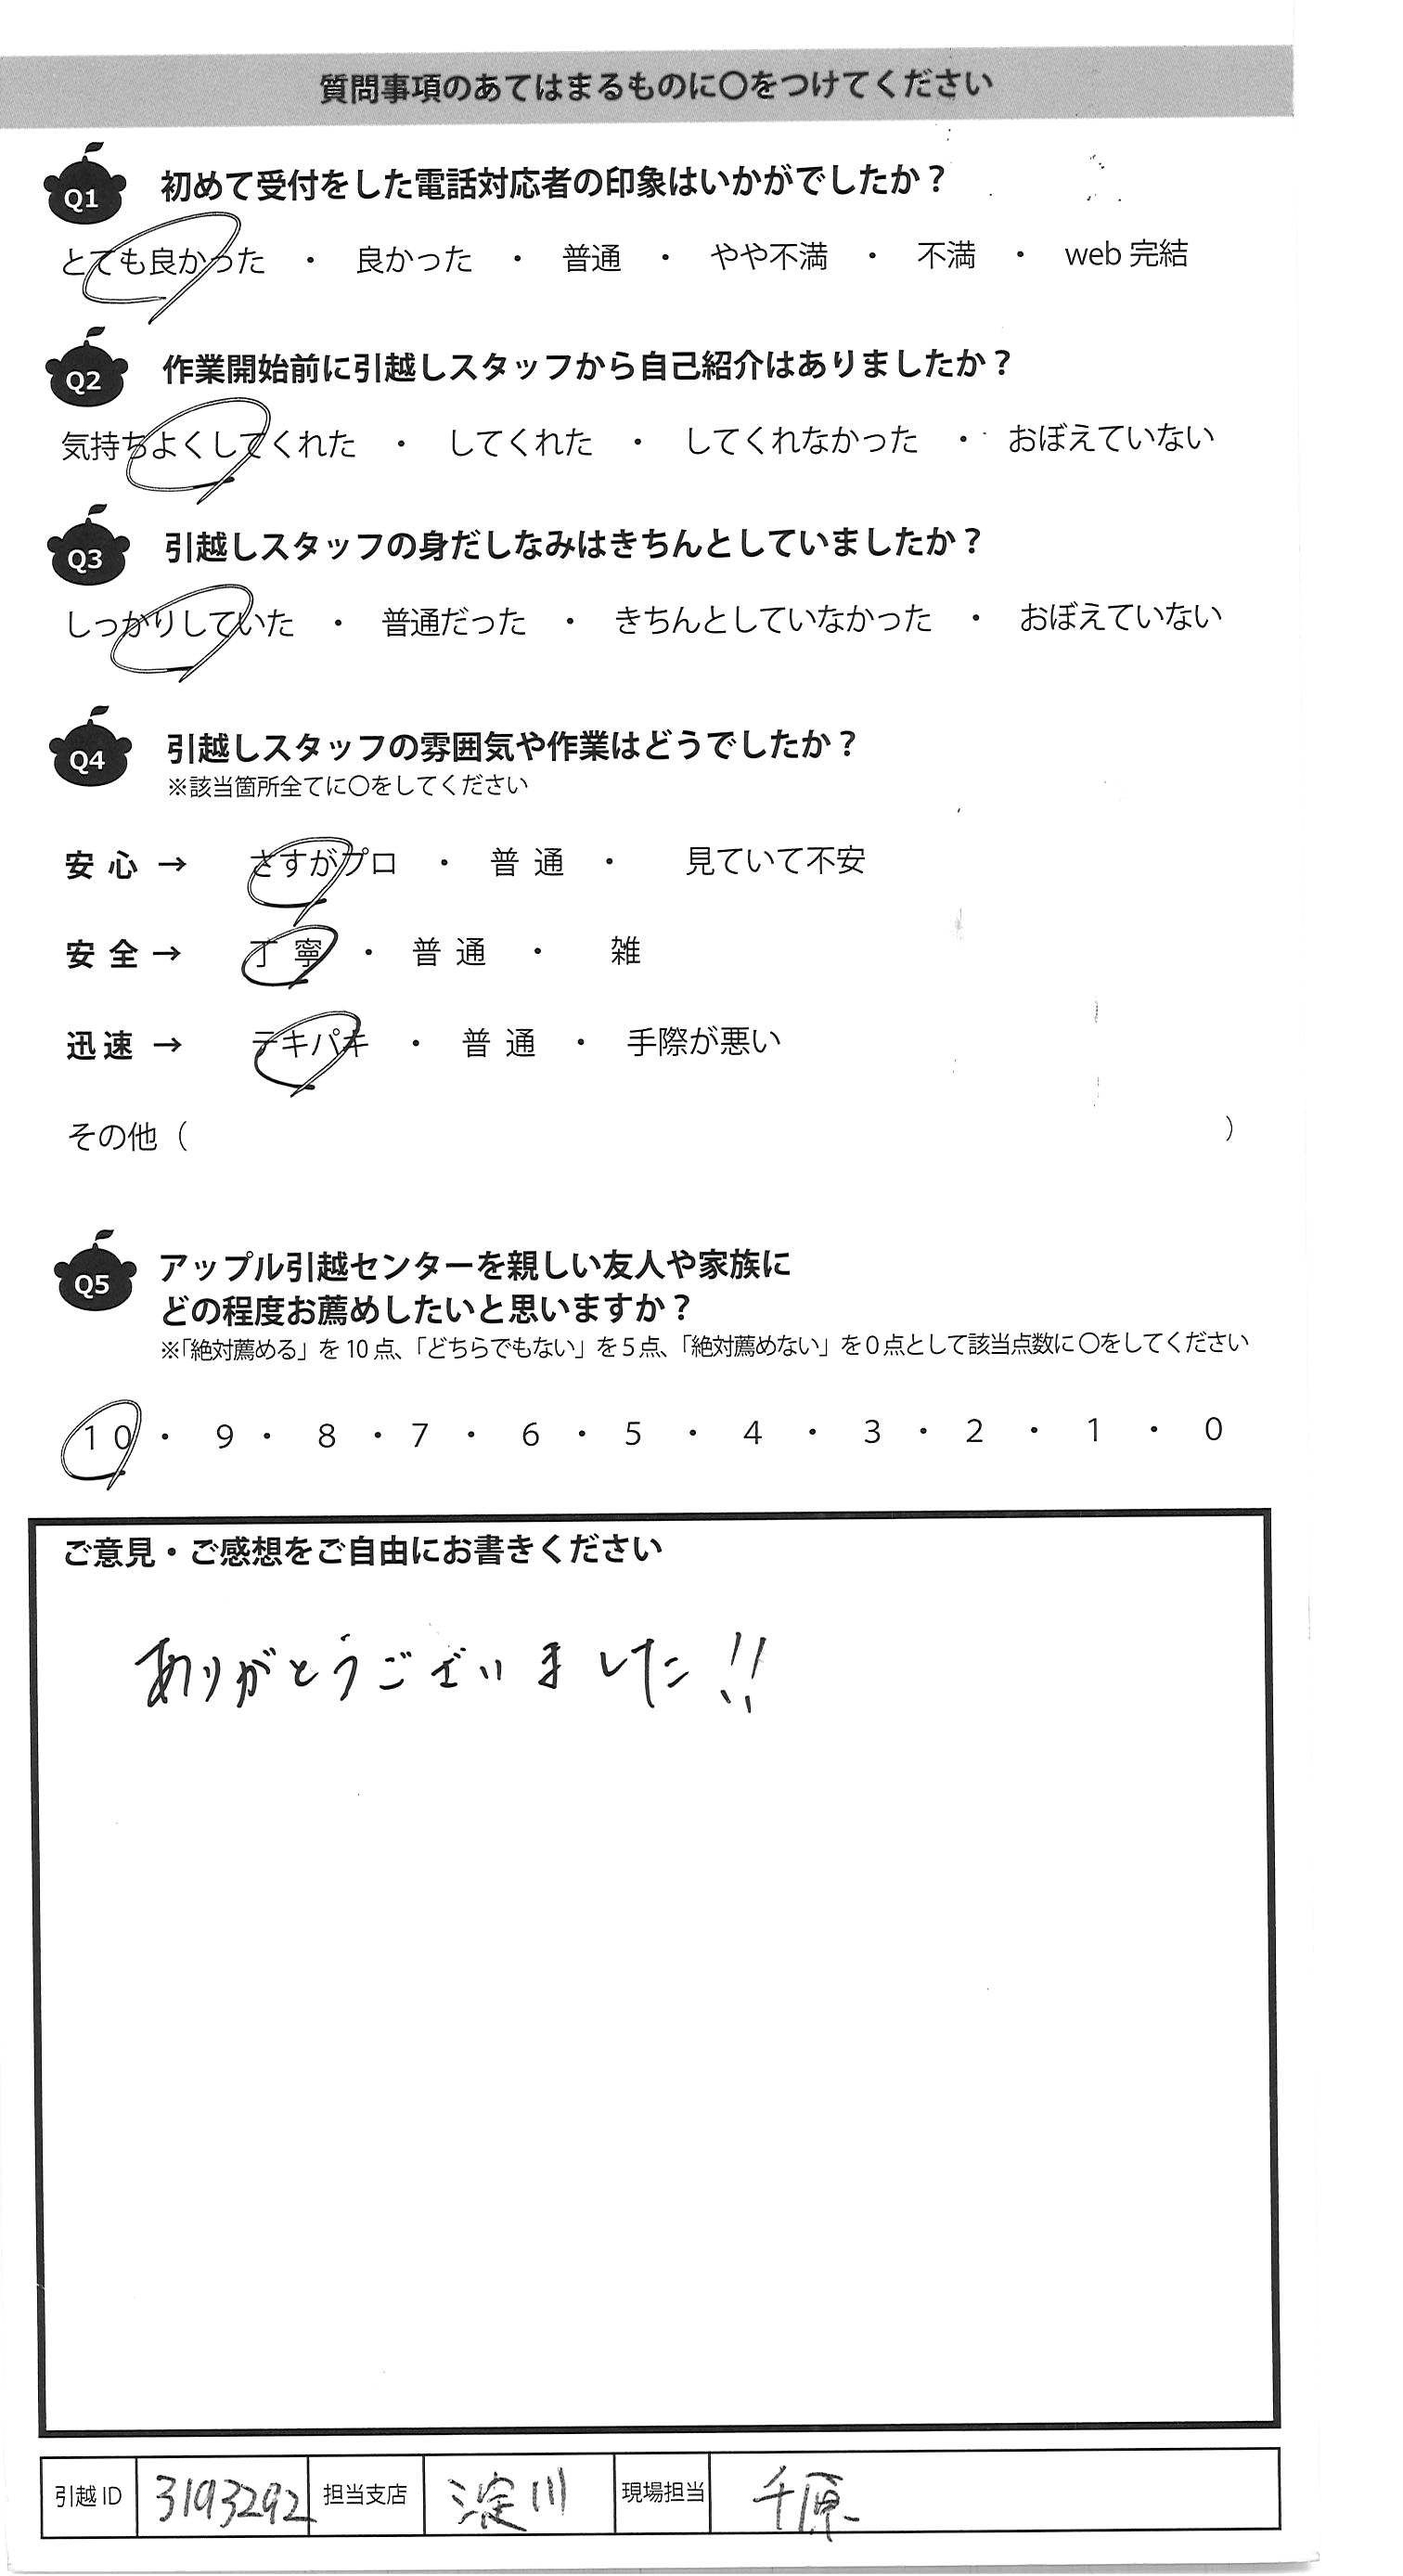 質問事項のあてはまるものに〇をつけてください
Q1 初めて受付をした電話対応者の印象はいかがでしたか？
とても良かった ・ 良かった ・ 普通 ・ やや不満 ・ 不満 ・ web 完結
Q2 作業開始前に引越しスタッフから自己紹介はありましたか？
気持ちよくしてくれた ・ してくれた ・ してくれなかった ・ おぼえていない
Q3 引越しスタッフの身だしなみはきちんとしていましたか？
しっかりしていた ・ 普通だった ・ きちんとしていなかった ・ おぼえていない
Q4 引越しスタッフの雰囲気や作業はどうでしたか？
※該当箇所全てに〇をしてください
安心 → さすがプロ ・ 普通 ・ 見ていて不安
安全 → 丁寧 ・ 普通 ・ 雑
迅速 → テキパキ ・ 普通 ・ 手際が悪い
その他（ ）
Q5 アップル引越センターを親しい友人や家族に
どの程度お薦めしたいと思いますか？
※「絶対薦める」を 10 点、「どちらでもない」を 5 点、「絶対薦めない」を 0 点として該当点数に〇をしてください
10 ・ 9 ・ 8 ・ 7 ・ 6 ・ 5 ・ 4 ・ 3 ・ 2 ・ 1 ・ 0
ご意見・ご感想をご自由にお書きください
ありがとうございました!!
引越 ID 3193292 担当支店 淀川 現場担当 千原